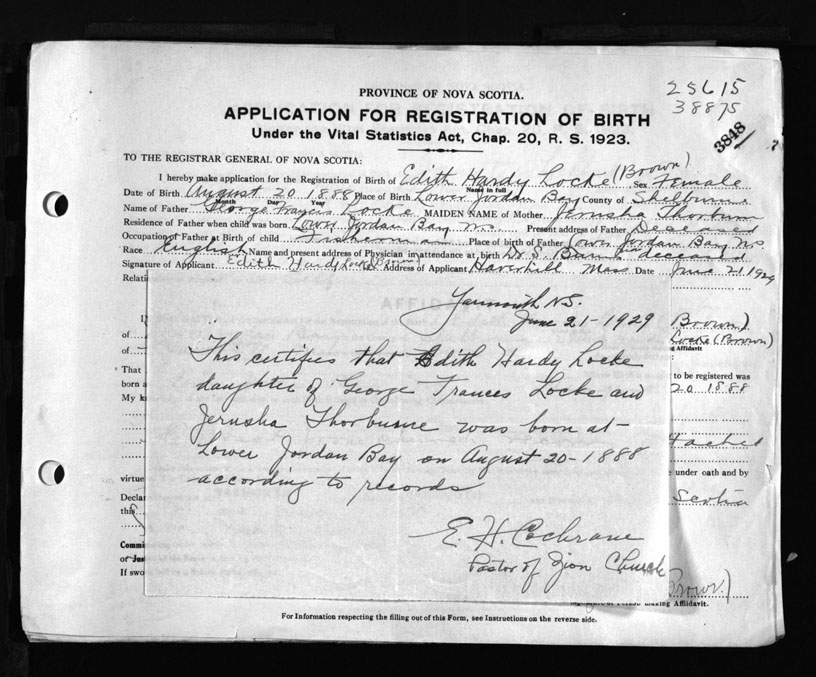 PROVINCE OF NOVA SCOTIA.
25615
38875
APPLICATION FOR REGISTRATION OF BIRTH
Under the Vital Statistics Act, Chap. 20, R. S. 1923.
3848
TO THE REGISTRAR GENERAL OF NOVA SCOTIA:
I hereby make application for the Registration of Birth of Edith Hardy Locke (Brown) Sex Female
Name in full
Date of Birth August 20 1888 Place of Birth Lower Jordan Bay County of Shelburne
Month Day Year
Name of Father George Francis Locke MAIDEN NAME of Mother Jerusha Thorburn
Residence of Father when child was born Lower Jordan Bay N.S. Present address of Father Deceased
Occupation of Father at Birth of child Fisherman Place of birth of Father Lower Jordan Bay N.S.
Race English Name and present address of Physician in attendance at birth Dr. S. deceased
Signature of Applicant Edith Hardy Locke (Brown) Address of Applicant Haverhill Mass Date June 21 1929
Relati
AFFID
Yarmouth N.S.
June 21-1929
I
(Brown)
of
Locke (Brown)
of
ng Affidavit
This certifies that Edith Hardy Locke
That
to be registered was
daughter of George Frances Locke and
born a
20 1888
My k
Jerusha Thorburne was born at
Lower Jordan Bay on August 20-1888
according to records
virtue
under oath and by
Declar
Scotia
this
E. H. Cochrane
Pastor of Zion Church
Commi
or Jus
If swo
Brown)
Making Affidavit.
For Information respecting the filling out of this Form, see Instructions on the reverse side.